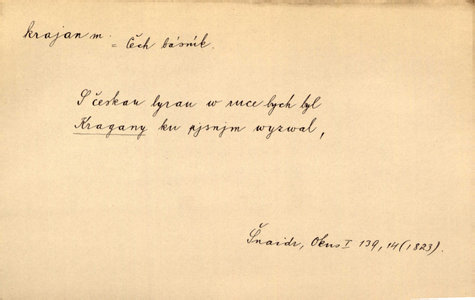 krajan m. = Čech básník.
S českau lyrau w ruce bych byl
Kragany ku pjsnjm wyzwal,
Šnaidr, Okus I 139, 14 (1823).